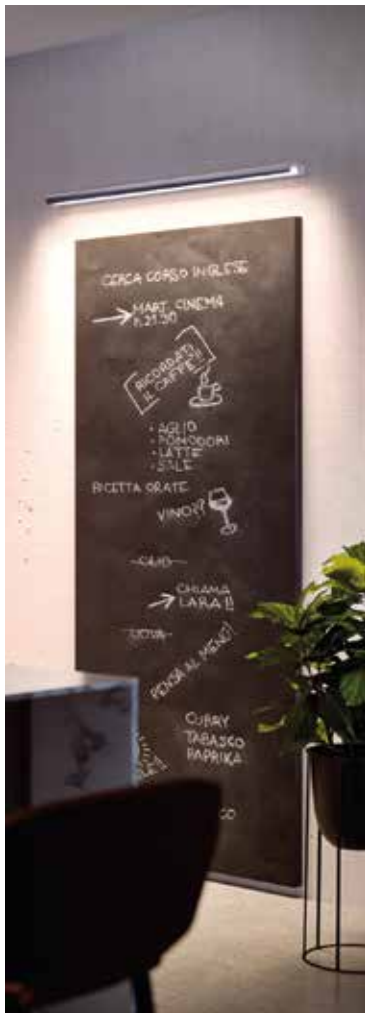 CERCA CORSO INGLESE
MART. CINEMA
h.21.30
RICORDATI
IL CAFFÈ!!
• AGLIO
• POMODORI
• LATTE
• SALE
RICETTA ORATE
VINO??
OLIO
CHIAMA
LARA!!
UOVA
PENSA AL MENÙ!
CURRY
TABASCO
PAPRIKA